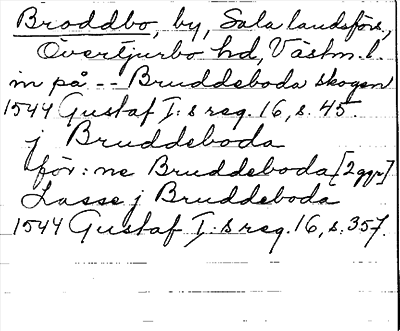 Broddbo, by, Sala landsförs.,
Övertjurbo hd, Västm. l.
in på -- Bruddeboda skogen
1544 Gustaf I:s reg. 16, s. 45.
j Bruddeboda
för:ne Bruddeboda [2ggr]
Lasse j Bruddeboda
1544 Gustaf I:s reg. 16, s. 357.